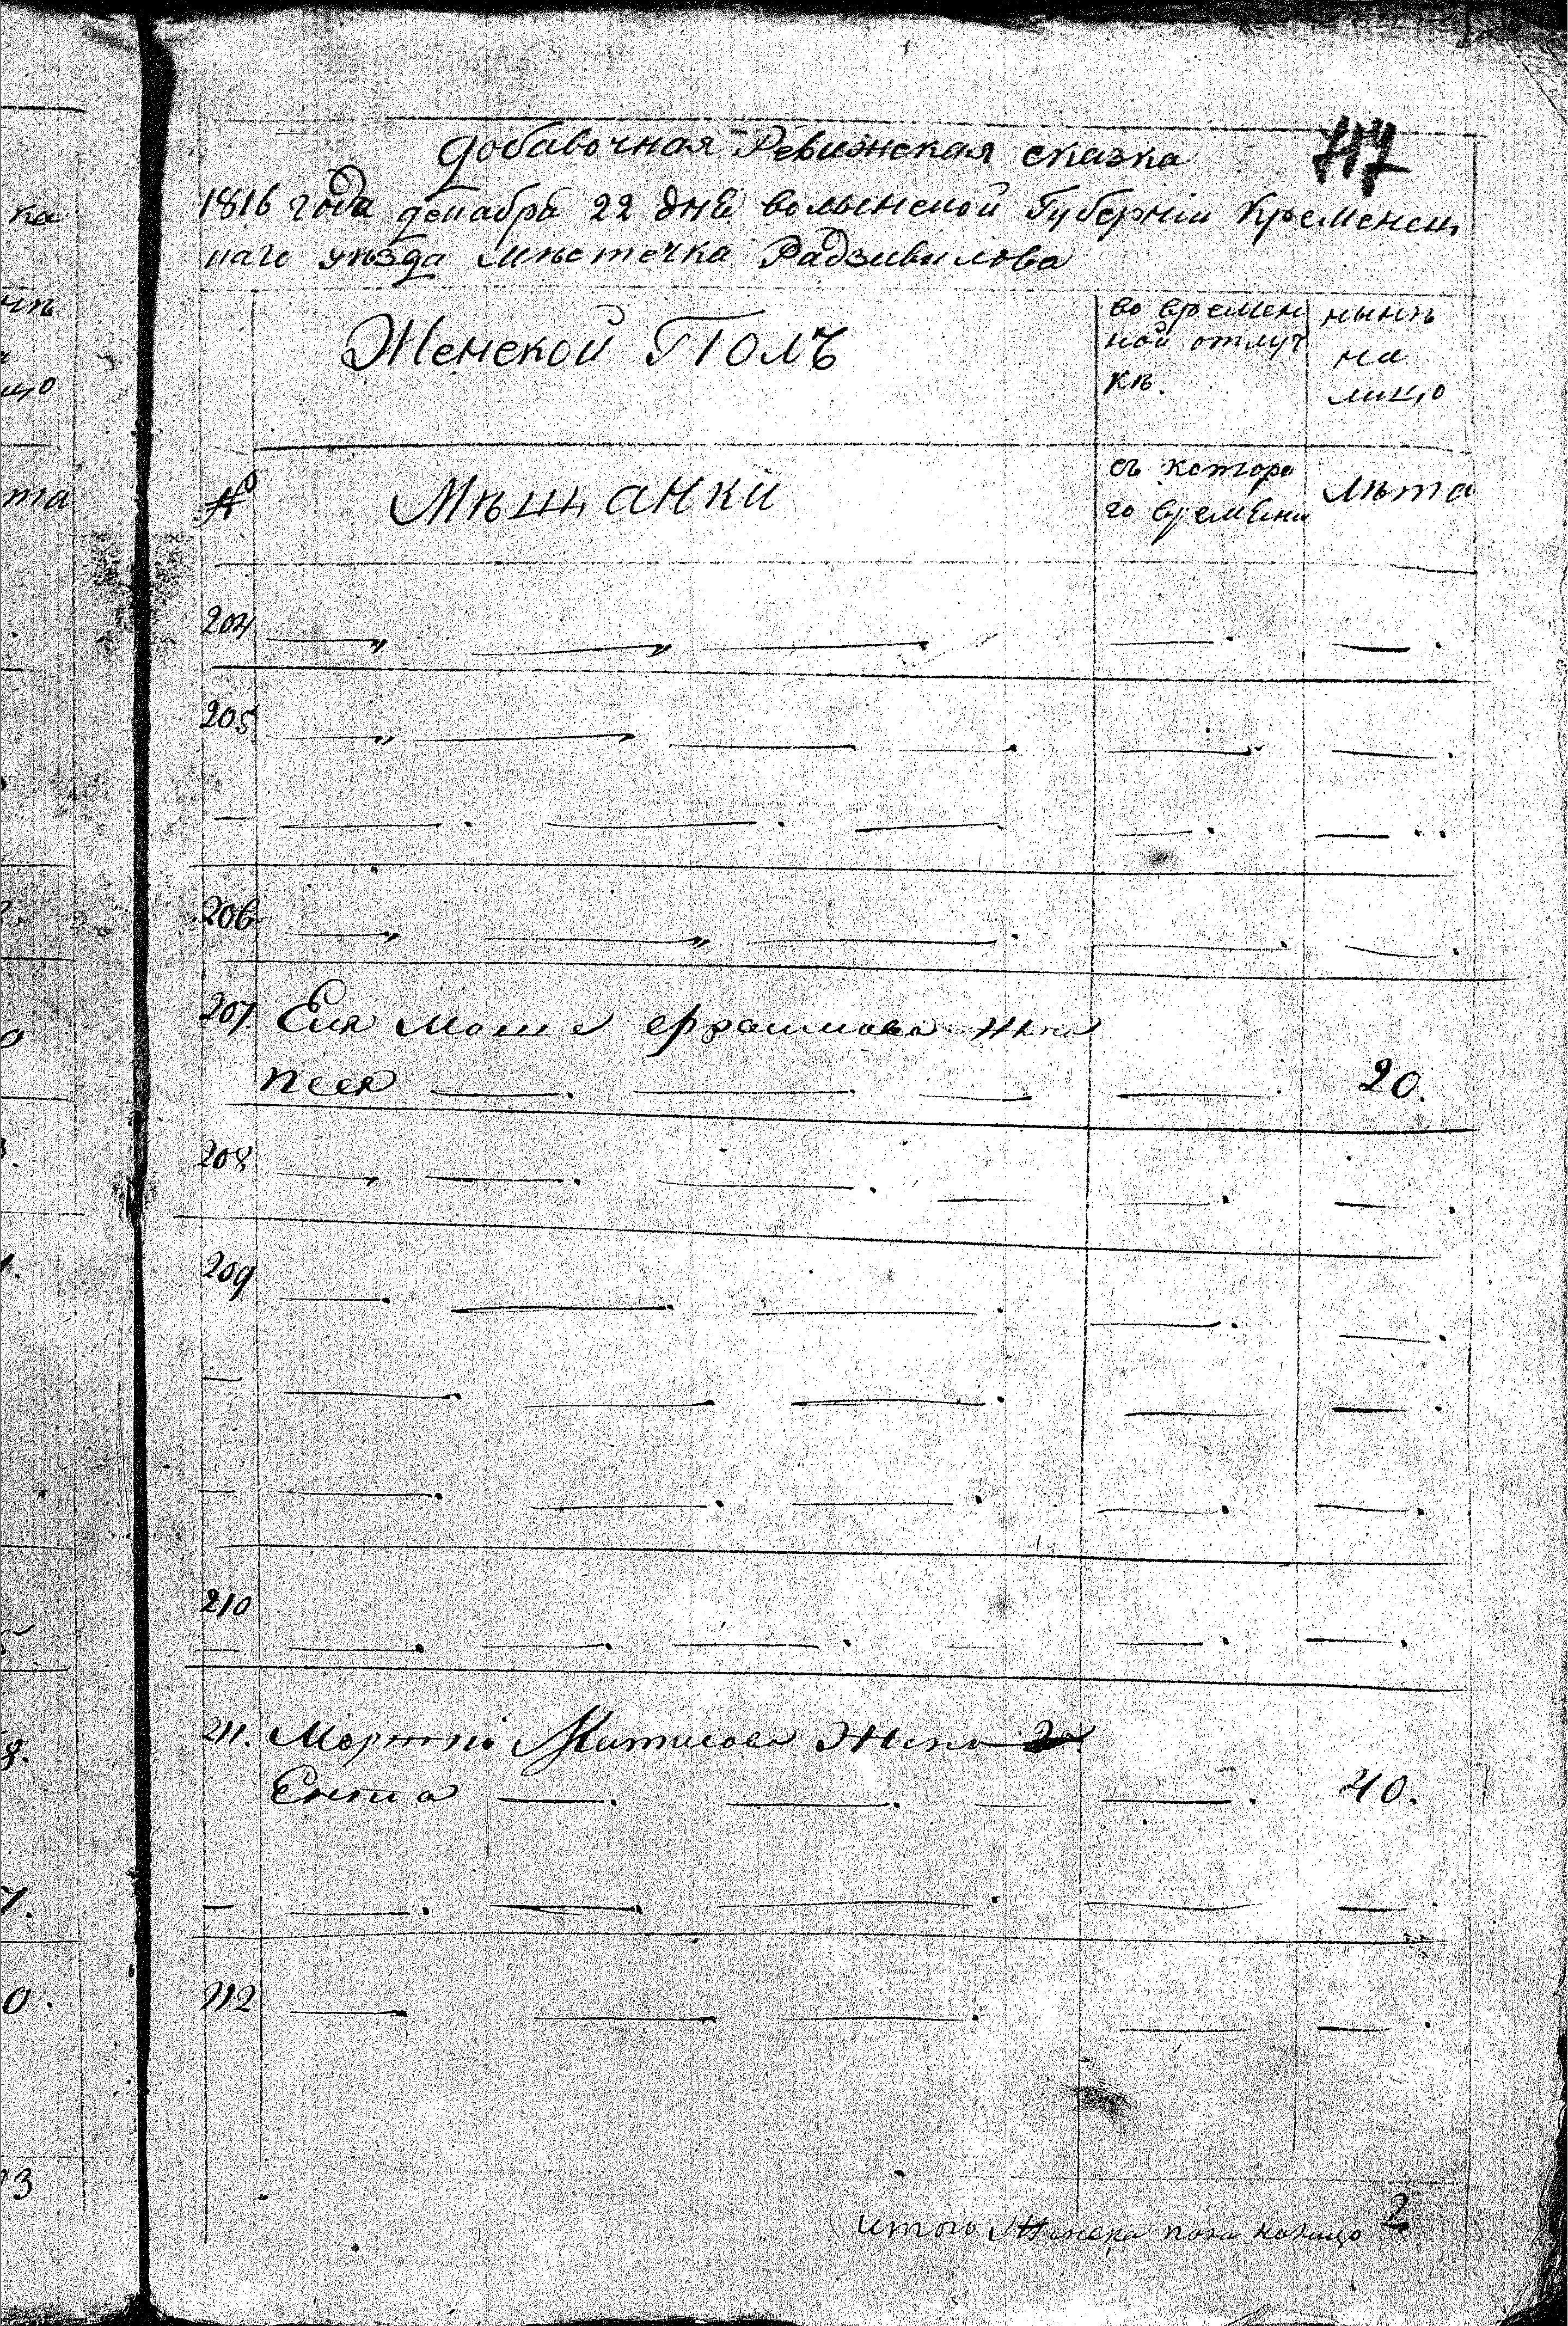 Добавочная Ревизская сказка
1816 года декабря 22 дня волынской Губернии Кременец
каго уѣзда мѣстечка Радзивилова
Женской Полъ
во времен
ной отлуч
кѣ.
нынѣ
на
лицо
№
Мѣщанки
съ которо
го времени
лѣта
204
205
206
207. Еля Мош ефраимова жена
песя 20.
208
209
210
211. Жена 2я
Ента 40.
212
итого Женска пола налицо 2
ка
та